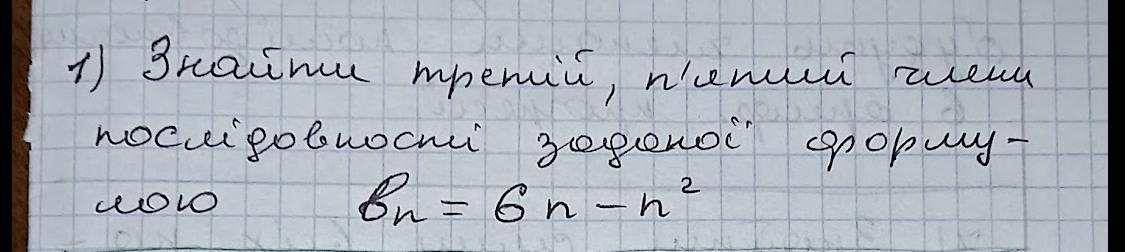 1) Знайти третій, п'ятий члени
послідовності заданої форму-
лою bn = 6n - n²